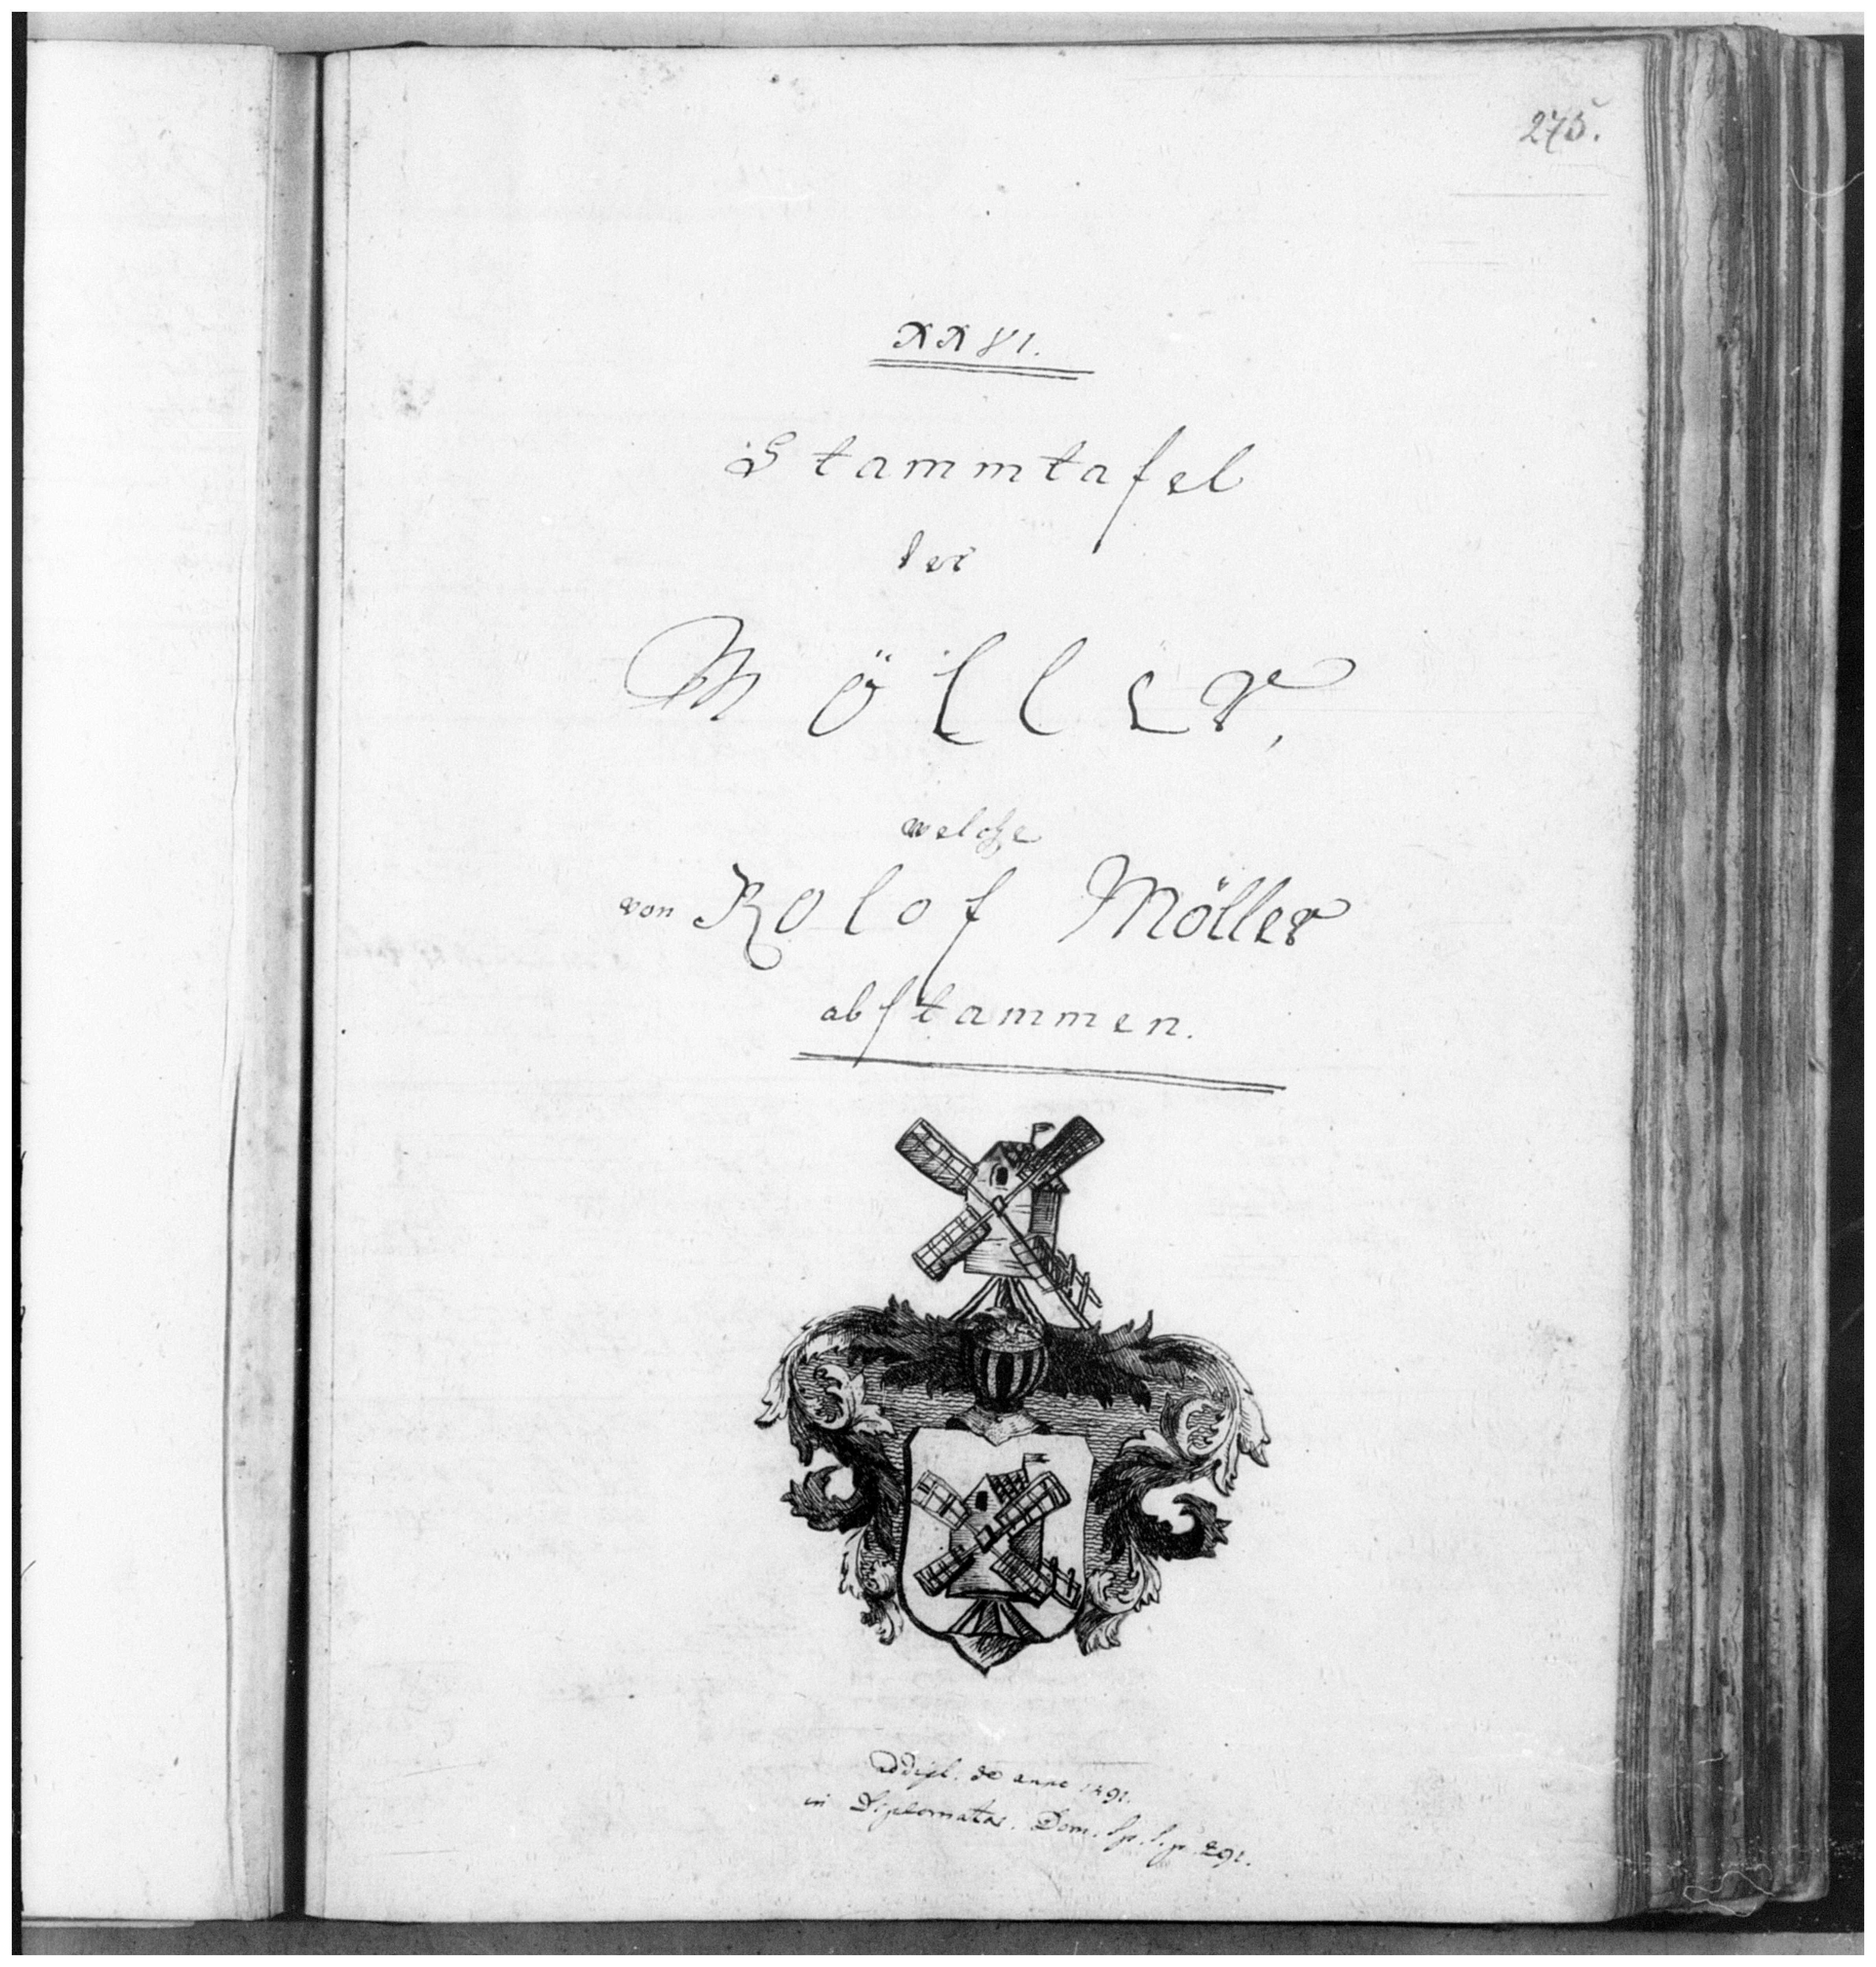 275.
XXVI.
Stammtafel
der
Möller,
welche
von Rolof Möller
abstammen.
de anno 1491.
in Diplomatar. Dom. Sp. S. p. 291.